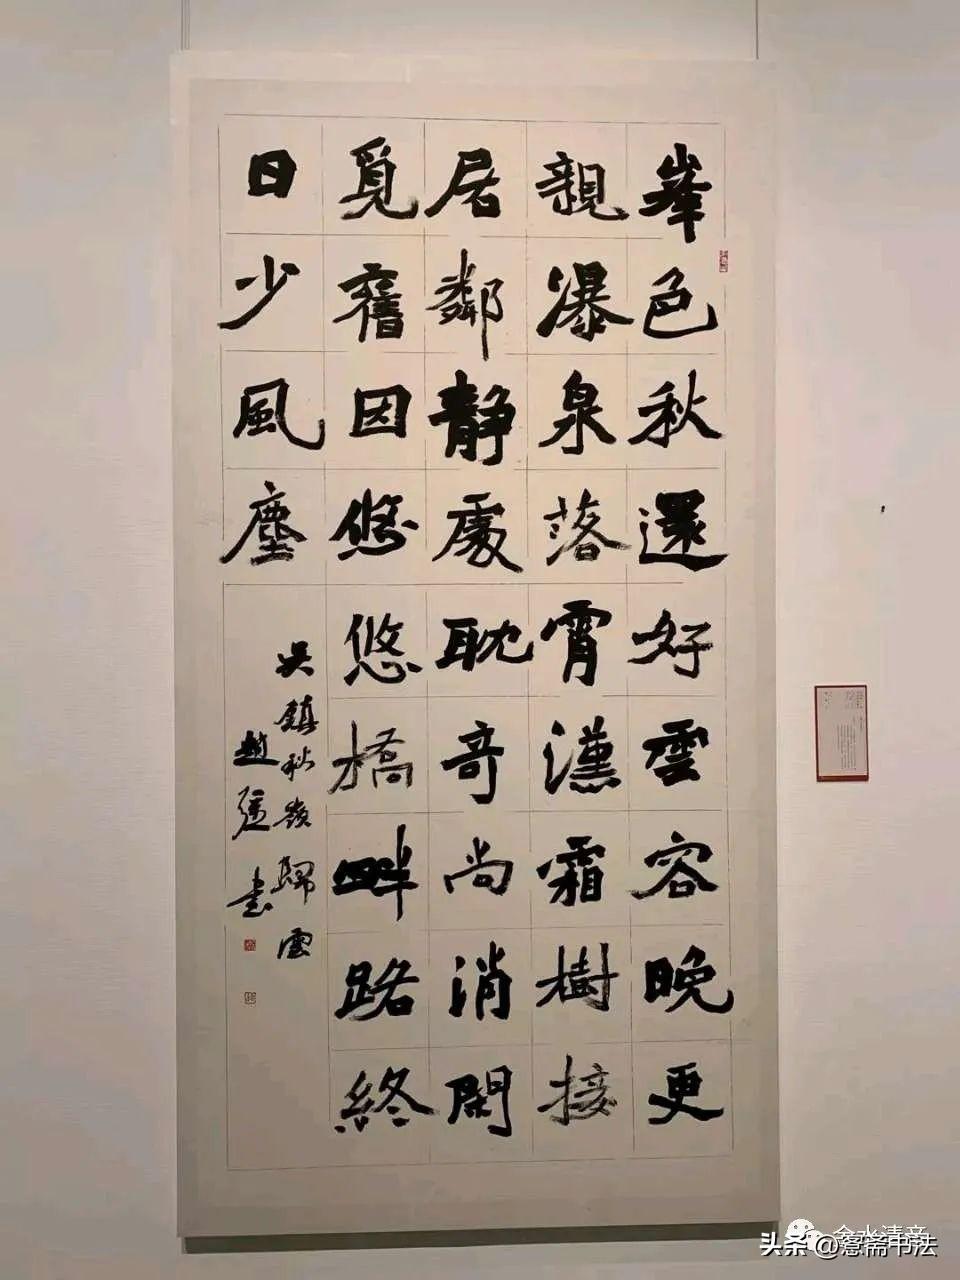 峯色秋還好雲容晚更
親瀑泉落霄漢霜樹接
居鄰靜處耽奇尚消閑
覓舊因悠悠橋畔路終
日少風塵
吳鎮秋嶺歸雲
趙
書
金水清音
头条@悫斋书法